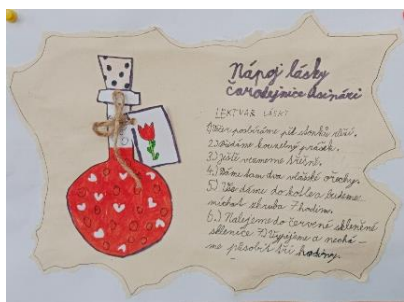 Nápoj lásky
čarodejnice Asinári
LEKTVAR LÁSKY
1) Večer posbíráme pět stonků růží.
2) Přidáme kouzelný prášek.
3) Ještě vezmeme třešně.
4.) Dáme tam dva vlašské ořechy.
5) Vše dáme do kotle a budeme
míchat zhruba 7 hodin.
6.) Nalejeme do červené skleněné
sklenice 7) Vypijeme a nechá-
me působit tři hodiny.